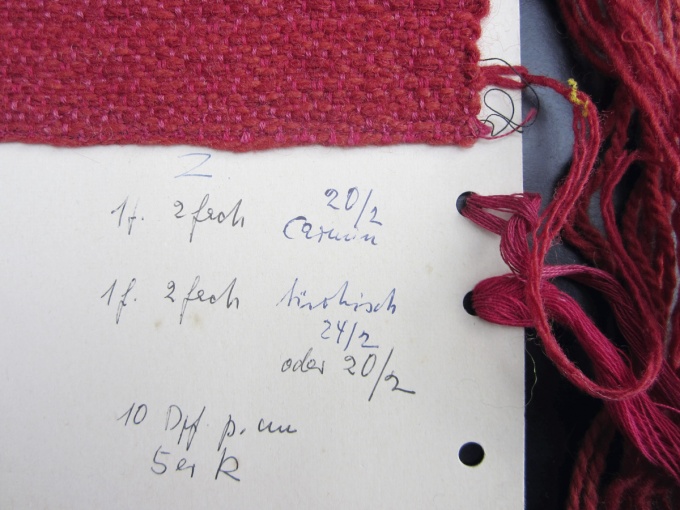 Z
1f. 2fach 20/2
Carmin
1f. 2fach türkisch
24/2
oder 20/2
10 Dpf. p. cm
5er K